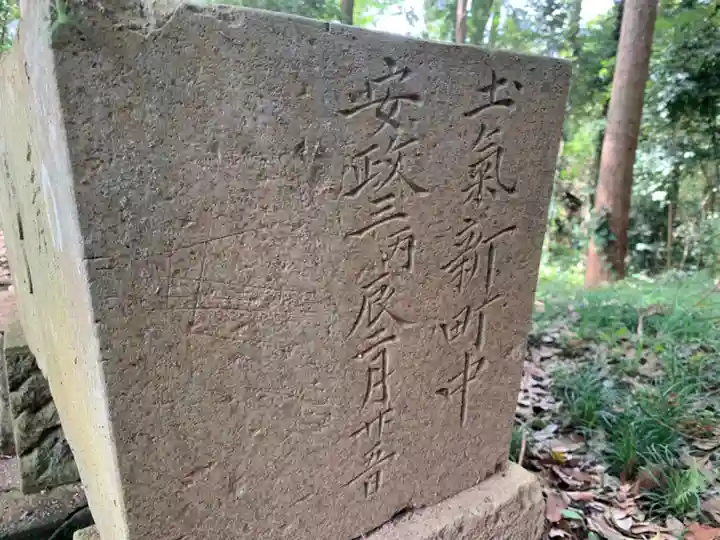 土氣新町中
安政三丙辰二月廿五日